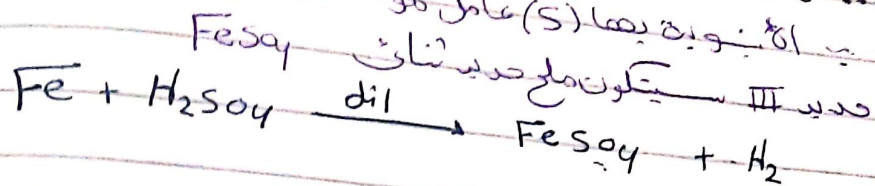 ب الأنبوبة بها (S) عامل مو
حديد III سيتكون ملح حديد ثنائي FeSO4
Fe + H2SO4 dil → FeSO4 + H2